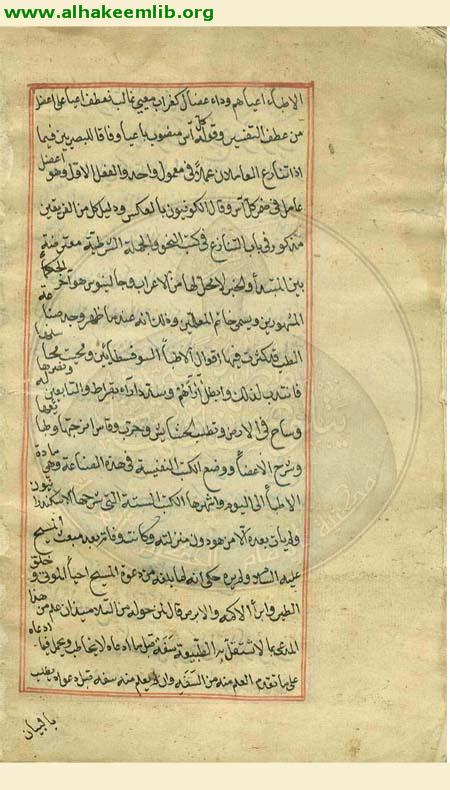 www.alhakeemlib.org
الاطباء اعياهم وداء عضال كغراب معيي غالب فعطف اعيا على اعضل
من عطف التفسير وقوله كل آس منصوب باعيا وفاقا للبصريين فيما
اذا تنازع العاملان عملا في معمول واحد والفعل الاول وهو اعضل
عامل في ضمير كل آس وقال الكوفيون بالعكس ودليل كل من الفريقين
مذكور في باب التنازع في كتب النحو والجملة الشرطية معترضة
بين المبتدأ والخبر لا محل لها من الاعراب وجالينوس هو آخر الحكماء
المشهورين ويسمى خاتم المعلمين وذلك انه عندما ظهر وجد صناعة
الطب قد كثرت فيها اقوال الاطباء السوفسطائين ومحت محاسنها
فانتدب لذلك وابطل آراءهم وسدد آراء بقراط والتابعين له ونصرها
وساح في الارض وتطلب الحشايش وجرب وقاس امزجتها وطبايعها
وشرح الاعضاء ووضع الكتب النفيسة في هذه الصناعة وهي مادة
الاطباء الى اليوم واشهرها الكتب الستة التي شرحها الاسكندرانيون
ولم يات بعده الا من هو دون منزلته وكانت وفاته بعد مبعث المسيح
عليه السلام ولم يره حكى انه لما بلغه من دعوة المسيح احياء الموتى وخلق
الطير وابراء الاكمه والابرص قال لمن حوله من التلاميذ ان علم من هذا
المدعي ما لا تستقل به الطبيعة سفه قبل ما ادعاه لا يخاطب ويحمل فيما ادعاه
على ما تقدم العلم منه من السفه وان لم يعلم منه سفه قبل دعواه يطلب
بالبيان